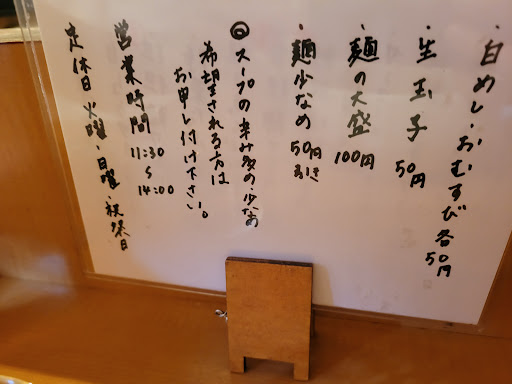 ・白めし・おむすび各50円
・生玉子 50円
・麺の大盛 100円
・麺少なめ 50円引き
◎スープの辛み多め・少なめ
希望される方は
お申し付け下さい。
営業時間 11:30〜14:00
定休日 火曜・日曜・祝祭日